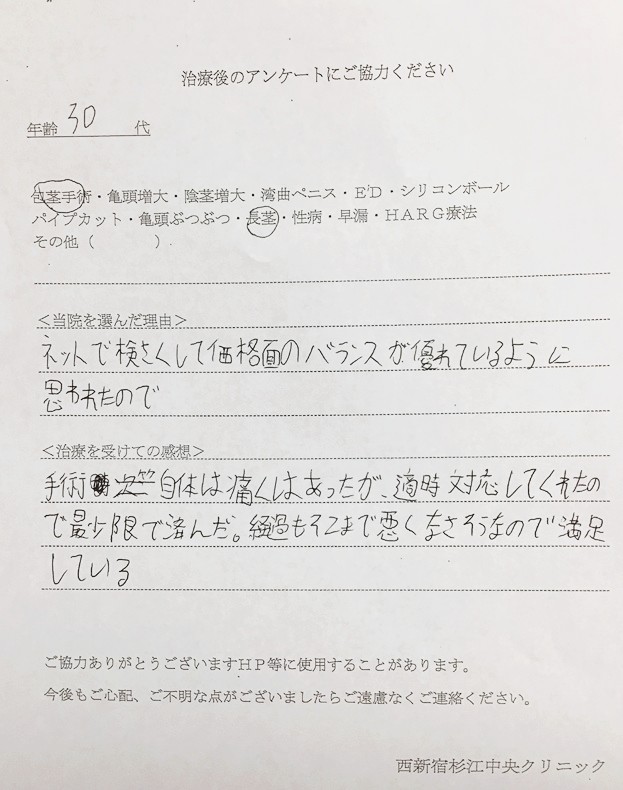 治療後のアンケートにご協力ください
年齢 30 代
包茎手術・亀頭増大・陰茎増大・湾曲ペニス・ED・シリコンボール
パイプカット・亀頭ぶつぶつ・長茎・性病・早漏・HARG療法
その他（　　　　）
＜当院を選んだ理由＞
ネットで検さくして価格面のバランスが優れているように
思われたので
＜治療を受けての感想＞
手術自体は痛くはあったが、適時対応してくれたの
で最少限で済んだ。経過もそこまで悪くなさそうなので満足
している
ご協力ありがとうございますHP等に使用することがあります。
今後もご心配、ご不明な点がございましたらご遠慮なくご連絡ください。
西新宿杉江中央クリニック